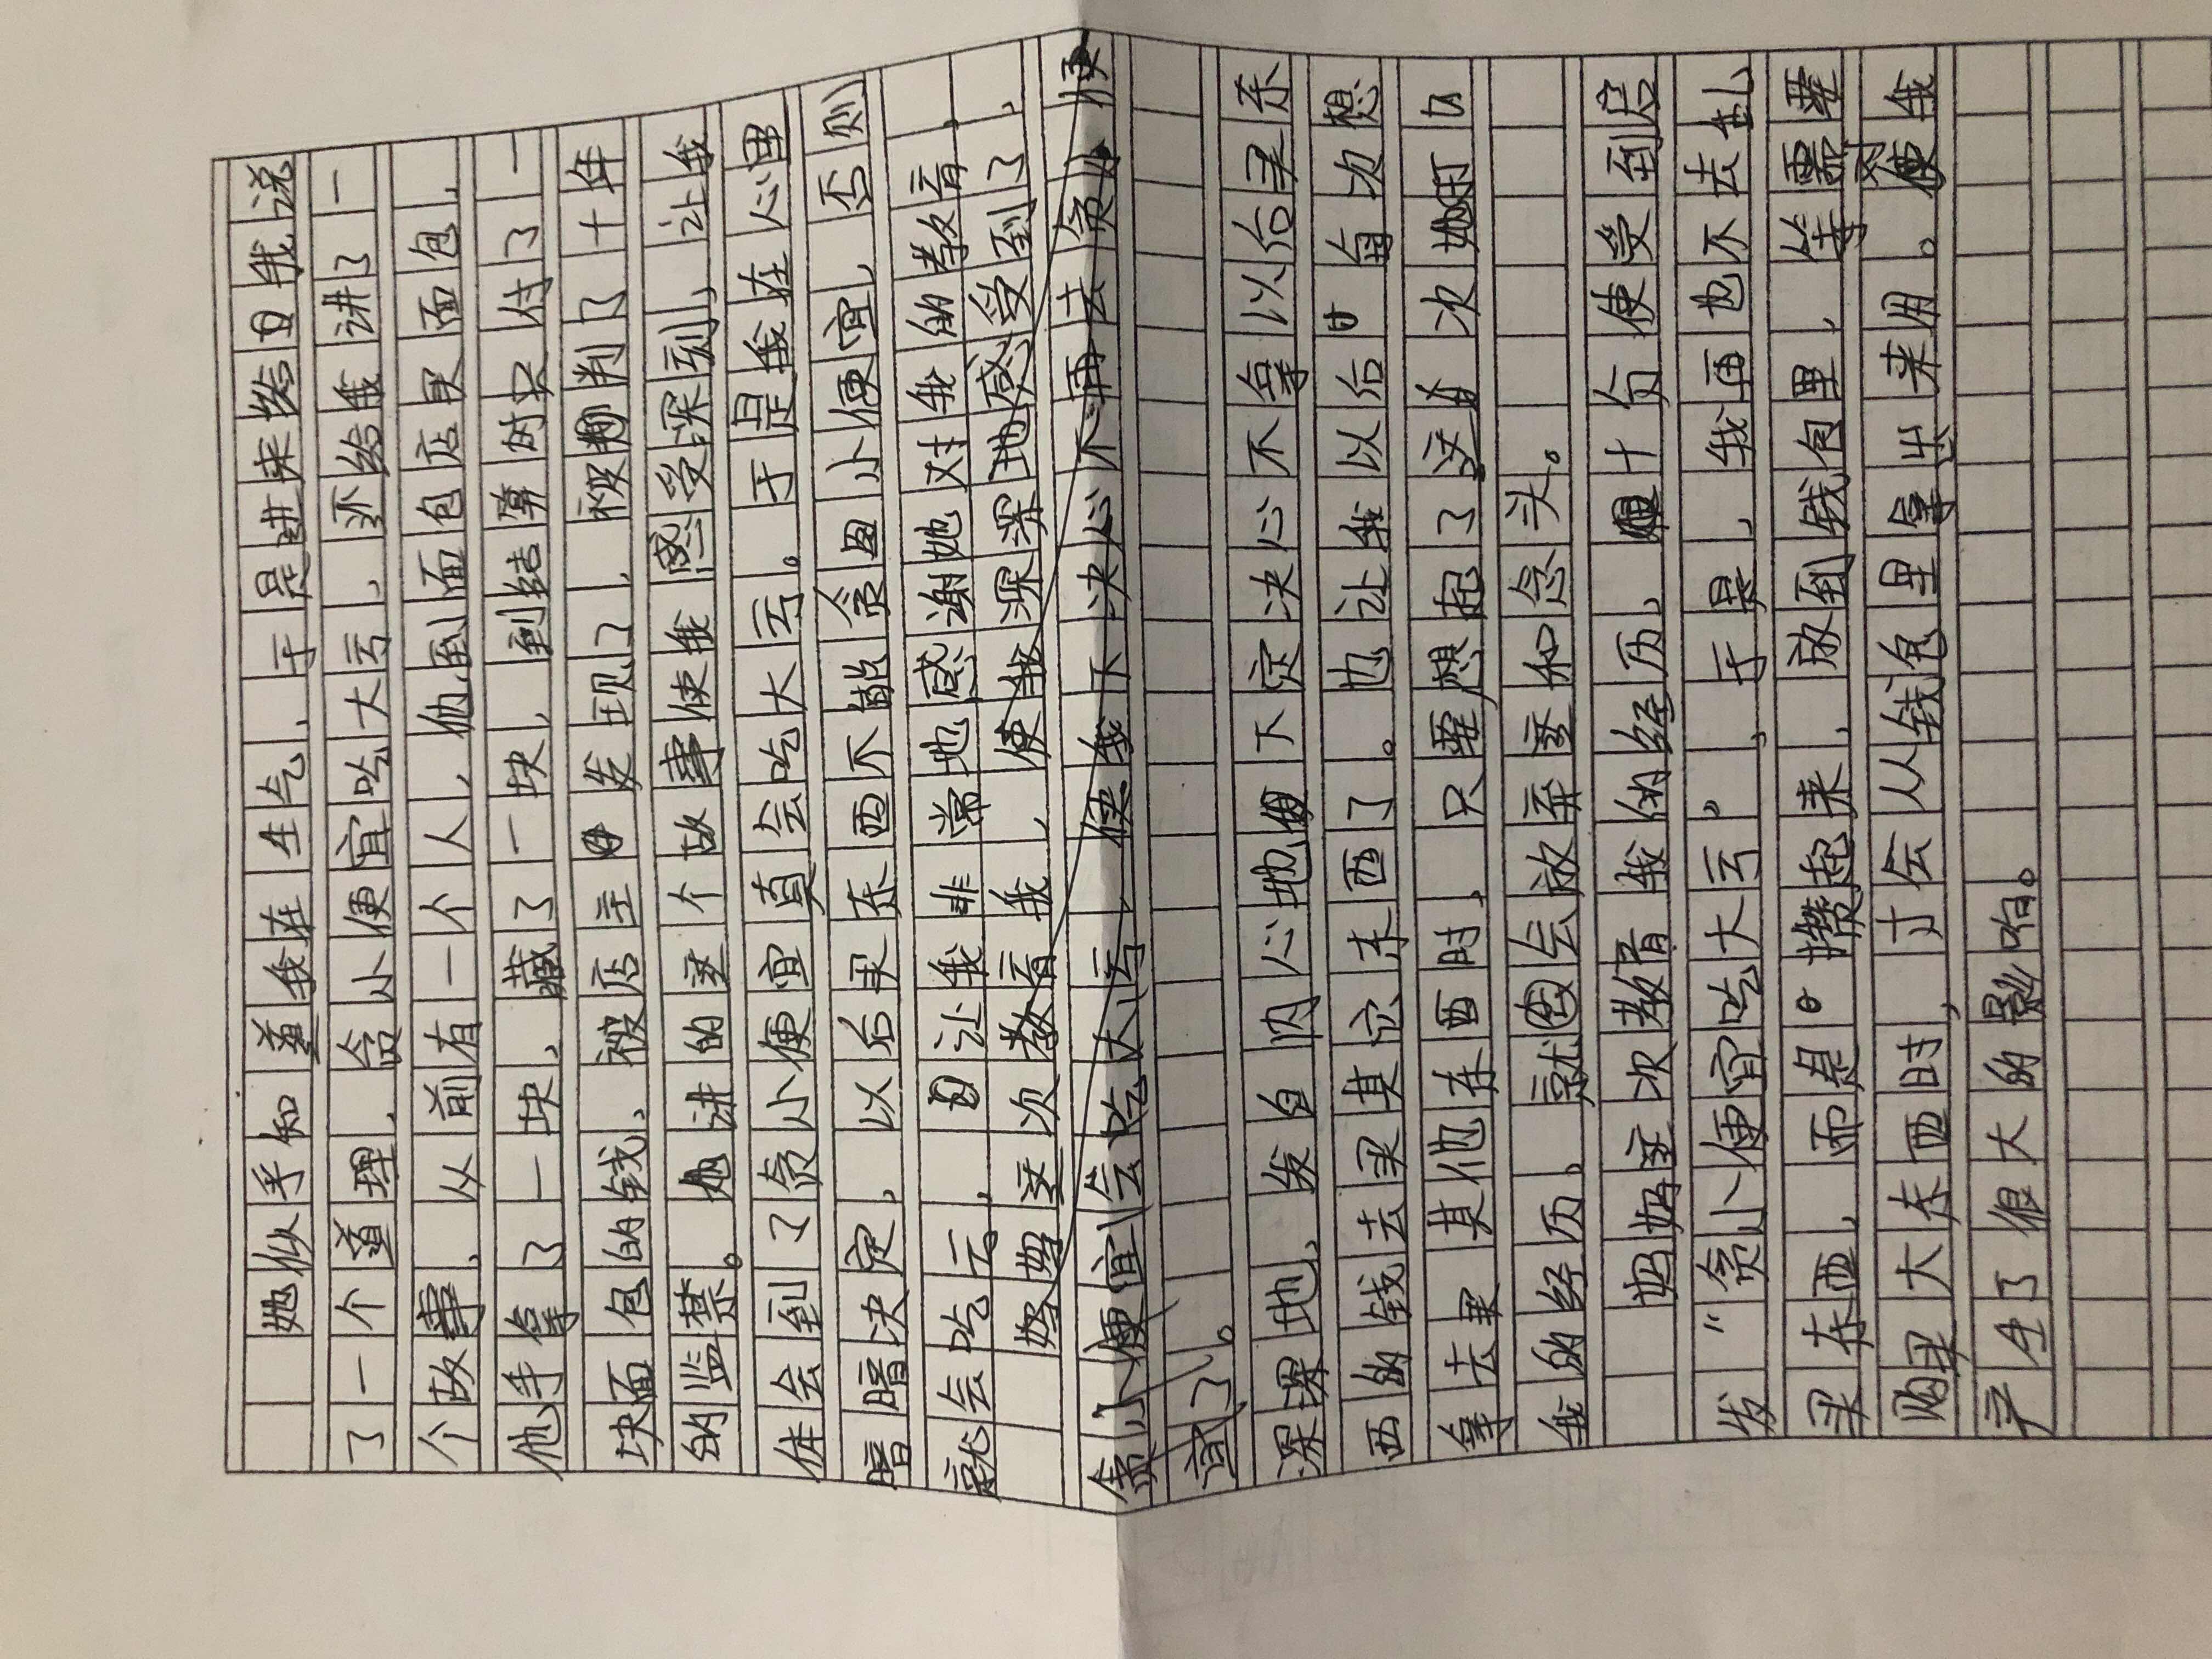 她似乎知道我在生气，于是进来给我说
了一个道理，贪小便宜吃大亏，还给我讲了一
个故事，从前有一个人，他到面包店买面包，
他手拿了一块，藏了一块，到结算时只付了一
块面包的钱，被店主发现了，被判了十年
的监禁。她讲的这个故事使我感受深刻，让我
体会到了贪小便宜真会吃大亏。于是我在心里
暗暗决定，以后买东西不敢贪小便宜，否则
就会吃亏，让我非常地感谢她对我的教育，
妈妈这次教育我，使我深深地感受到了，
贪小便宜会吃大亏，使我下决心不再去贪小便
宜了。
深深地，发自内心地下定决心不拿以后买东
西的钱去买其它东西了。也让我以后每次想
拿去买其他东西时，只要想起了这次她叮
我的经历。就会放弃这和念头。
妈妈这次教育我的经历，十分使受到启
发"贪小便宜吃大亏"，于是，我再也不去乱
买东西，而是攒起来，放到钱包里，等需要
购买大东西时，才会从钱包里拿出来用。对我
产生了很大的影响。